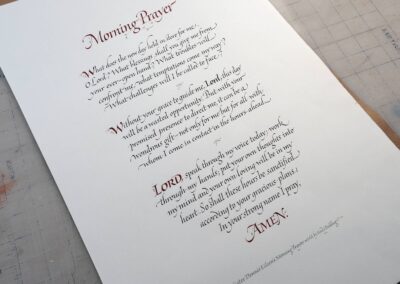 Morning Prayer
What does the new day hold in store for me,
O Lord? What blessings shall you give me from
your ever-open hand? What troubles will
confront me, what temptations come my way?
What challenges will I be called to face?
Without your grace to guide me, Lord, this day
will be a wasted opportunity. But with your
promised presence to direct me, it can be a
wondrous gift—not only for me but for all with
whom I come in contact in the hours ahead.
LORD, speak through my voice today; work
through my hands; put your own thoughts into
my mind and your own loving will be in my
heart. So shall these hours be sanctified
according to your gracious plans;
In your strong name I pray,
AMEN.
Morning Prayer